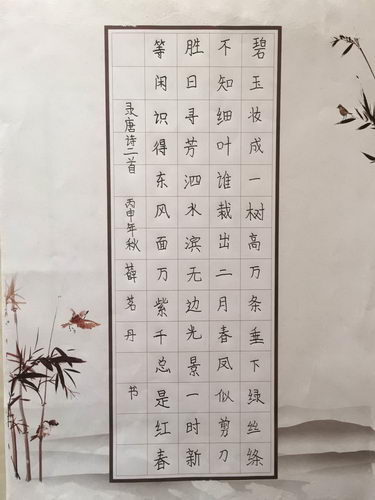 碧玉妆成一树高万条垂下绿丝绦
不知细叶谁栽出二月春风似剪刀
胜日寻芳泗水滨无边光景一时新
等闲识得东风面万紫千总是红春
录唐诗二首 丙申年秋 薛茗丹 书